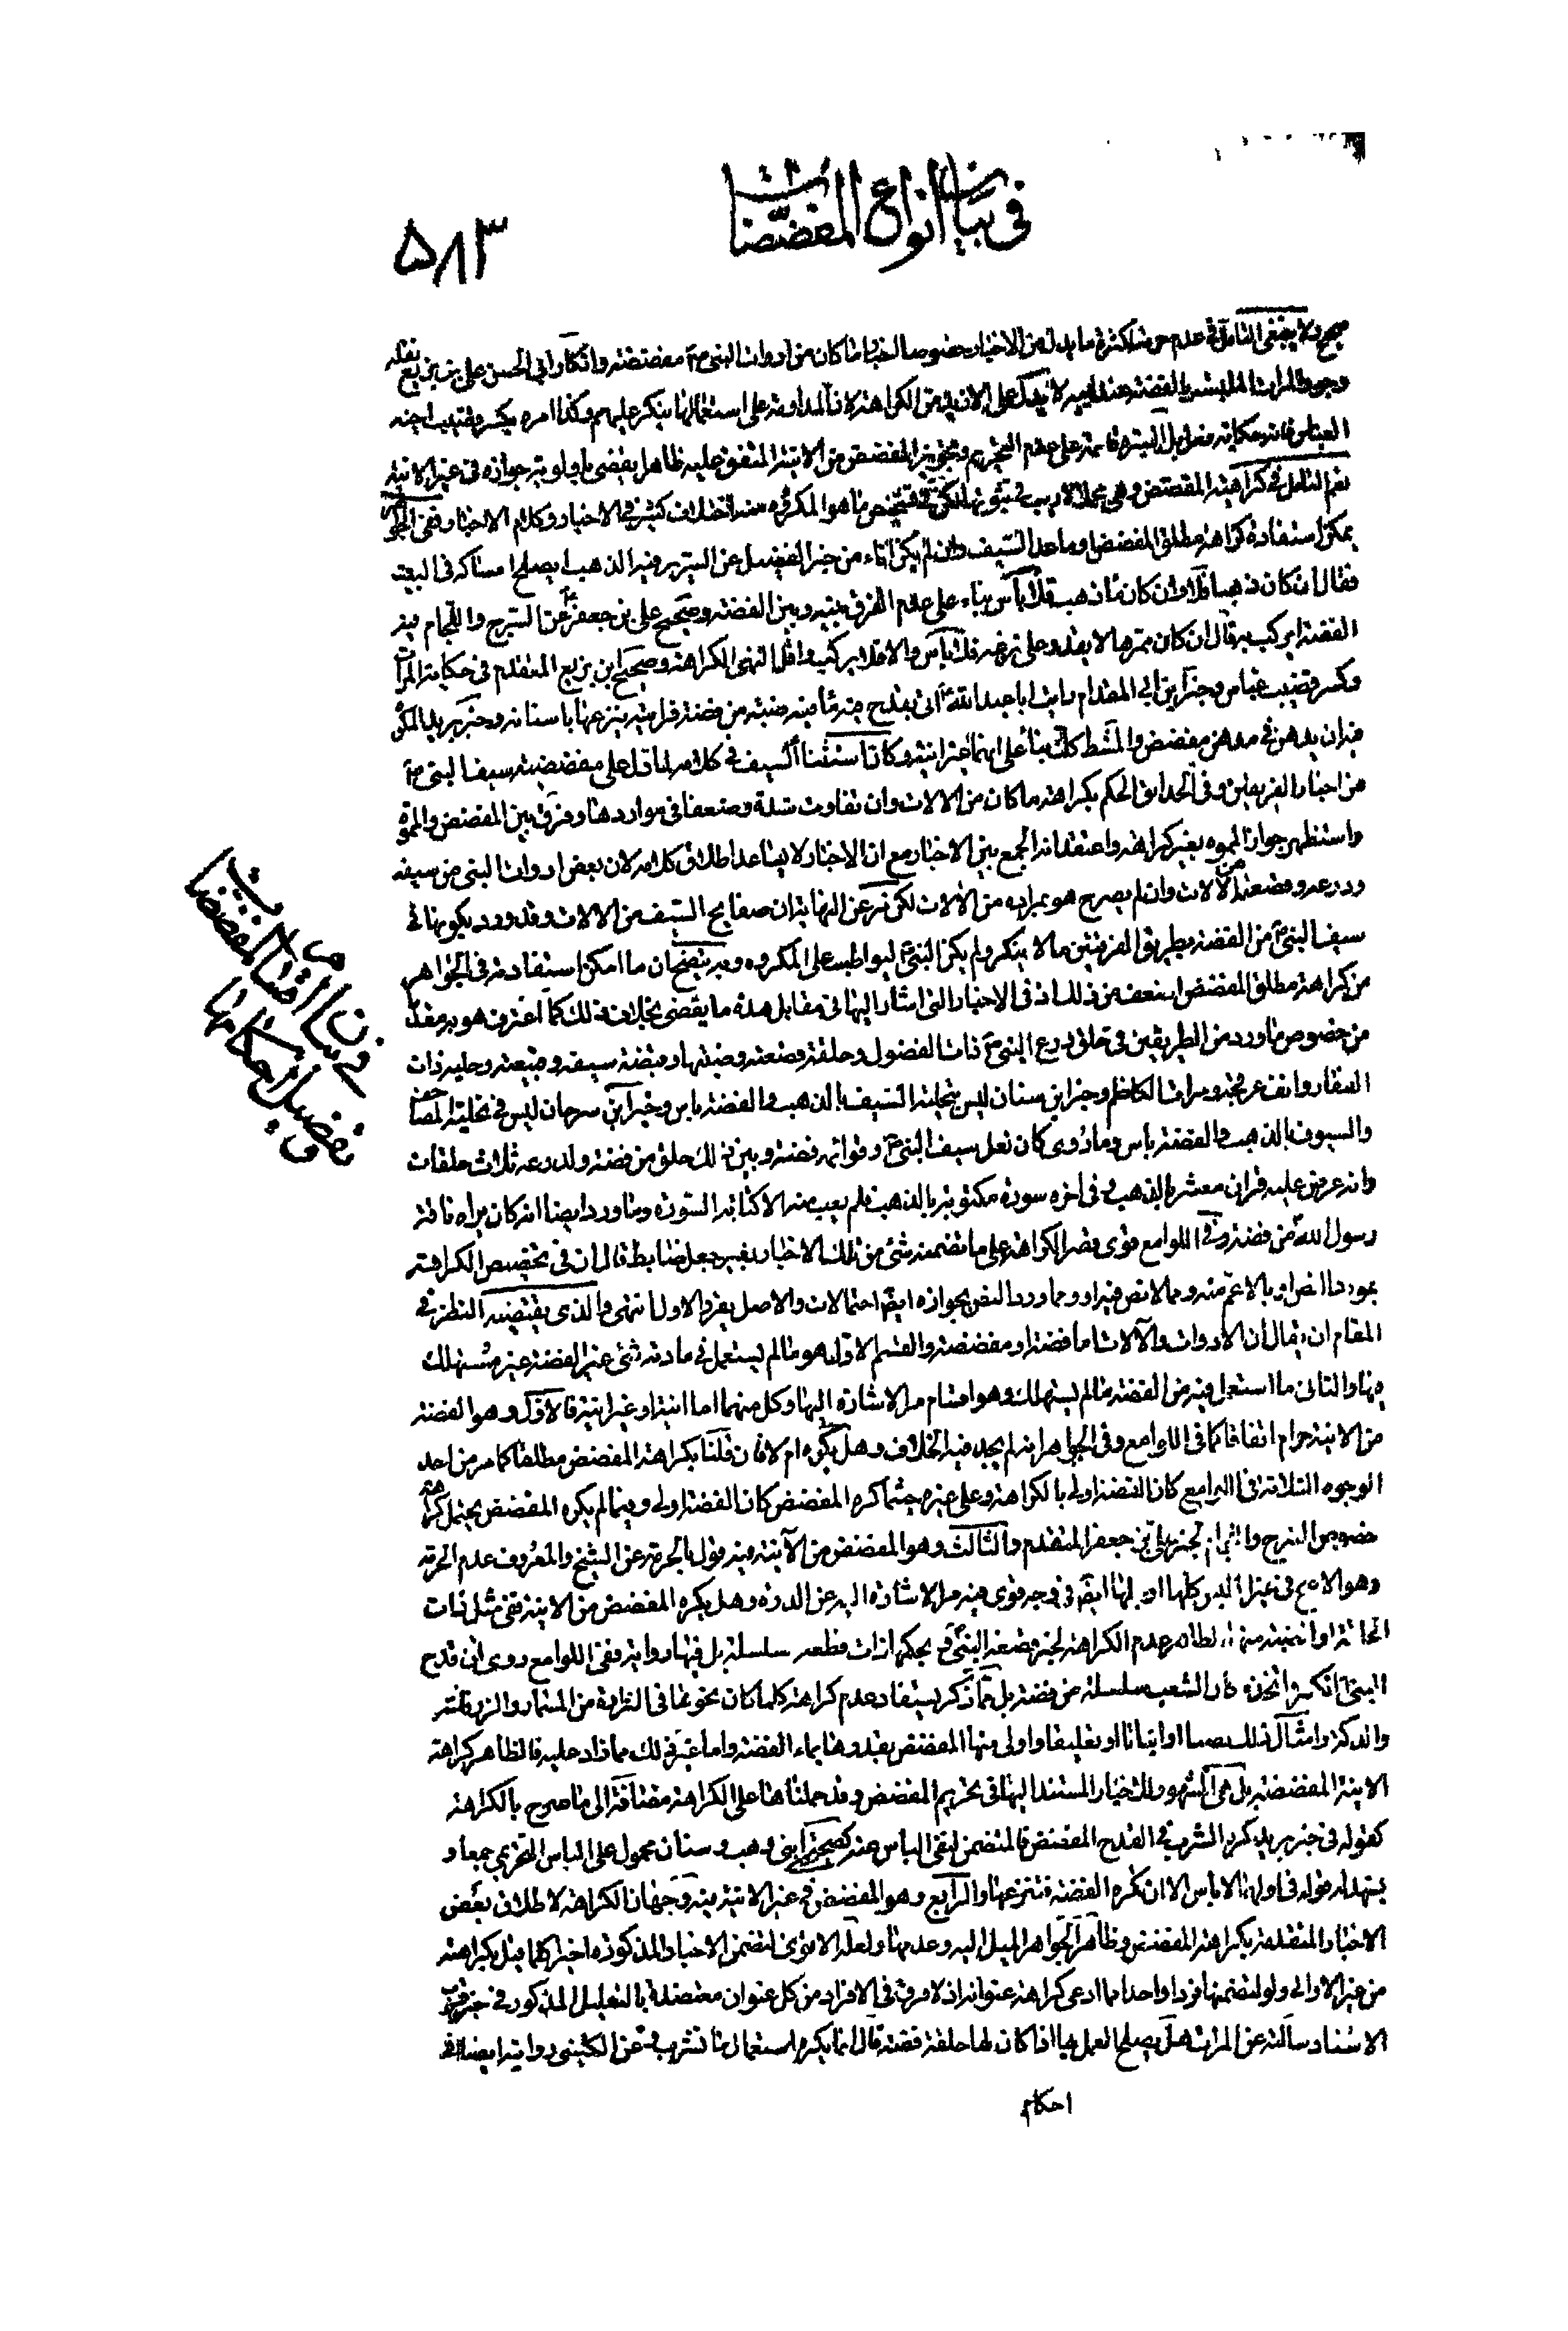 في بيان انواع المفضضات
۵۸۳
صحيح ولا ينبغي التامل في عدم حرمته لكثرة ما يدل من الاخبار خصوصا لخبار ما كان من ادوات النبي ص مفضضة وانكار ابي الحسن على بن بزيع نقله
وجود المرات الملبسة بالفضة عند ابيه لا يدل على الازيد من الكراهة لان المداومة على استعمالها ينكر عليهم وكذا امره بكسر قضيب اجنه
العباس فانه حكاية فعل بل السيرة قائمة على عدم التحريم وتجويز المفضض من الانية المتفق عليه ظاهرا يقضى باولوية جوازه في غير الانية
نعم التامل في كراهية المفضض وهي مما لا ريب في ثبوتها لكن في تشخيص ما هو المكروه منه اختلاف كثير في الاخبار وكلام الاخيار ففي الجواهر
يمكن استفادة كراهة مطلق المفضض وما عدا السيف وان لم يكن اناء من خبر الفضيل عن السرير فيه الذهب ايصلح امساكه في البيت
فقال ان كان ذهبا فلا وان كان ماء ذهب فلا باس بناء على عدم الفرق بينه وبين الفضة وصحيح على بن جعفر عن السرج واللجام فيه
الفضة ايركب به قال ان كان مموها لا يقدر على نزعه فلا باس والا فلا يركب واقل النهى الكراهة وصحيح ابن بزيع المتقدم في حكاية المرات
وكسر قضيب عباس وخبر ابن ابي المقدام رايت ابا عبد الله ع اتى بقدح فيه ضبة من فضة فرايته ينزعها باسنانه وخبر بريد المكروه
فيه ان يدهن في مدهن مفضض والمشط كك بناء على انهما غير انية وكان استثنا السيف في كلامه لما دل على مفضضية سيف النبي ص
من اخبار الفريقين وفي الحدائق الحكم بكراهة ما كان من الالات وان تفاوت شدة وضعفا في مواردها وفرق بين المفضض والمموه
واستظهر جواز المموه بغير كراهة واعتقد انه الجمع بين الاخبار مع ان الاخبار لا يساعد اطلاق كلامه لان بعض ادوات النبي من سيفه
ودرعه وقصعته من الالات وان لم يصرح هو بمراده من الالات لكن نرى عن النهاية ان صفايح السيف من الالات وقد ورد بكونها في
سيف النبي ص من الفضة بطريق الفريقين ما لا ينكر ولم يكن النبي ص ليواظب على المكروه وبه يتضح ان ما امكن استفادته في الجواهر
من كراهة مطلق المفضض اضعف من ذلك اذ في الاخبار التي اشار اليها في مقابل هذه ما يقضى بخلاف ذلك كما اعترف هو به فقد
من خصوص ما ورد من الطريقين في حلق درع النبي ص ذات الفضول وحلقة قصعته وضبتها وقبضة سيفه وقبيعته وحلية ذات
الفقار وانف عرفجه ومرات الكاظم وخبر ابن سنان ليس بتحلية السيف بالذهب والفضة باس وخبر ابن سرحان ليس في تحلية المصاحف
والسيوف بالذهب والفضة باس وما روى كان نعل سيف النبي ص وقوائمه فضة وبين ذلك حلق من فضة ولدرعه ثلاث حلقات
وانه عرض عليه قران معشر بالذهب وفي اخره سورة مكتوبة بالذهب فلم يعب منه الا كتابة السورة وما ورد ايضا انه كان براه ناقة
رسول الله ص من فضة وفي اللوامع قوى قصر الكراهة على ما تضمنه شئ من تلك الاخبار بغير جعل ضابط قال ان في تخصيص الكراهة
بمورد النص او بالاعم منه ومما لا نص فيه او ومما ورد النص بجوازه ايض احتمالات والاصل يفرد الاول انتهى والذى يقتضيه النظر في
المقام ان يقال ان الادوات والالات اما فضة او مفضضة والقسم الاول هو ما لم يستعمل في مادته شئ غير الفضة غير مستهلك
فيها والثاني ما استعمل فيه من الفضة ما لم يستهلك وهو اقسام مر الاشارة اليها وكل منهما اما انية او غير انية فالاول وهو الفضة
من الانية حرام اتفاقا كما في اللوامع وفي الجواهر انه لم يجد فيه الخلاف وهل يكره ام لا فان قلنا بكراهة المفضض مطلقا كما مر من احد
الوجوه الثلاثة في اللوامع كان الفضة اولى بالكراهة وعلى غيره حيثما كره المفضض كان الفضة اولى وفيما لم يكره المفضض يحتمل كراهة
خصوص السرج واللجام لخبر على بن جعفر المتقدم والثالث وهو المفضض من الآنية فيه قول بالحرمة عن الشيخ والمعروف عدم الحرمة
وهو الاصح في غير الملبس كلها او جلها ايض في وجه قوى فيه مر الاشارة اليه عن الدرة وهل يكره المفضض من الانية ففي مثل ذات
الحلقة او الضبة منها الظاهر عدم الكراهة لخبر قصعة النبي ص بحكمها ذات قطعة سلسلة بل فيها رواية ففي اللوامع روى ان قدح
النبي ص انكسر فاتخذ مكان الشعب سلسلة من فضة بل مما ذكر يستفاد عدم كراهة كلما كان نحو غما في الندارة من المسمار والزرفنة
والدكة وامثال ذلك نصبا او اثباتا او تعليقا واولى منها المفضض بقدوها بماء الفضة واما غير ذلك مما زاد عليه فالظاهر كراهة
الانية المفضضة بل هي الشهور للاخبار المستند اليها في تحريم المفضض وقد حملناها على الكراهة مضافة الى ما صرح بالكراهة
كقوله في خبر بريد كره الشرب في القدح المفضض فالمتضمن لنفي الباس عنه كصحيحة ابن وهب وسنان محمول على الباس التحريمي جمعا و
يشهد له قوله في اولها لا باس الا ان تكره الفضة فتنزعها والرابع وهو المفضض في غير الانية فيه وجهان الكراهة لاطلاق بعض
الاخبار المتقدمة بكراهة المفضض وظاهر الجواهر الميل اليه وعدمها ولعله الاقوى لتضمن الاخبار المذكورة اخيرا كلما قيل بكراهته
من غير الاوانى ولو لتضمنها فردا واحدا مما ادعى كراهة عنوانه اذ لا فرق في الافراد من كل عنوان معتضدة بالتعليل المذكور في خبر قرب
الاسناد سالته عن المرات هل يصلح العمل بها اذا كان لها حلقة فضة قال انما يكره استعمال ما تشرب به وعن الكليني رواية ايضا
احكام
في بيان اقسام المفضضات
وتفصيل احكامها